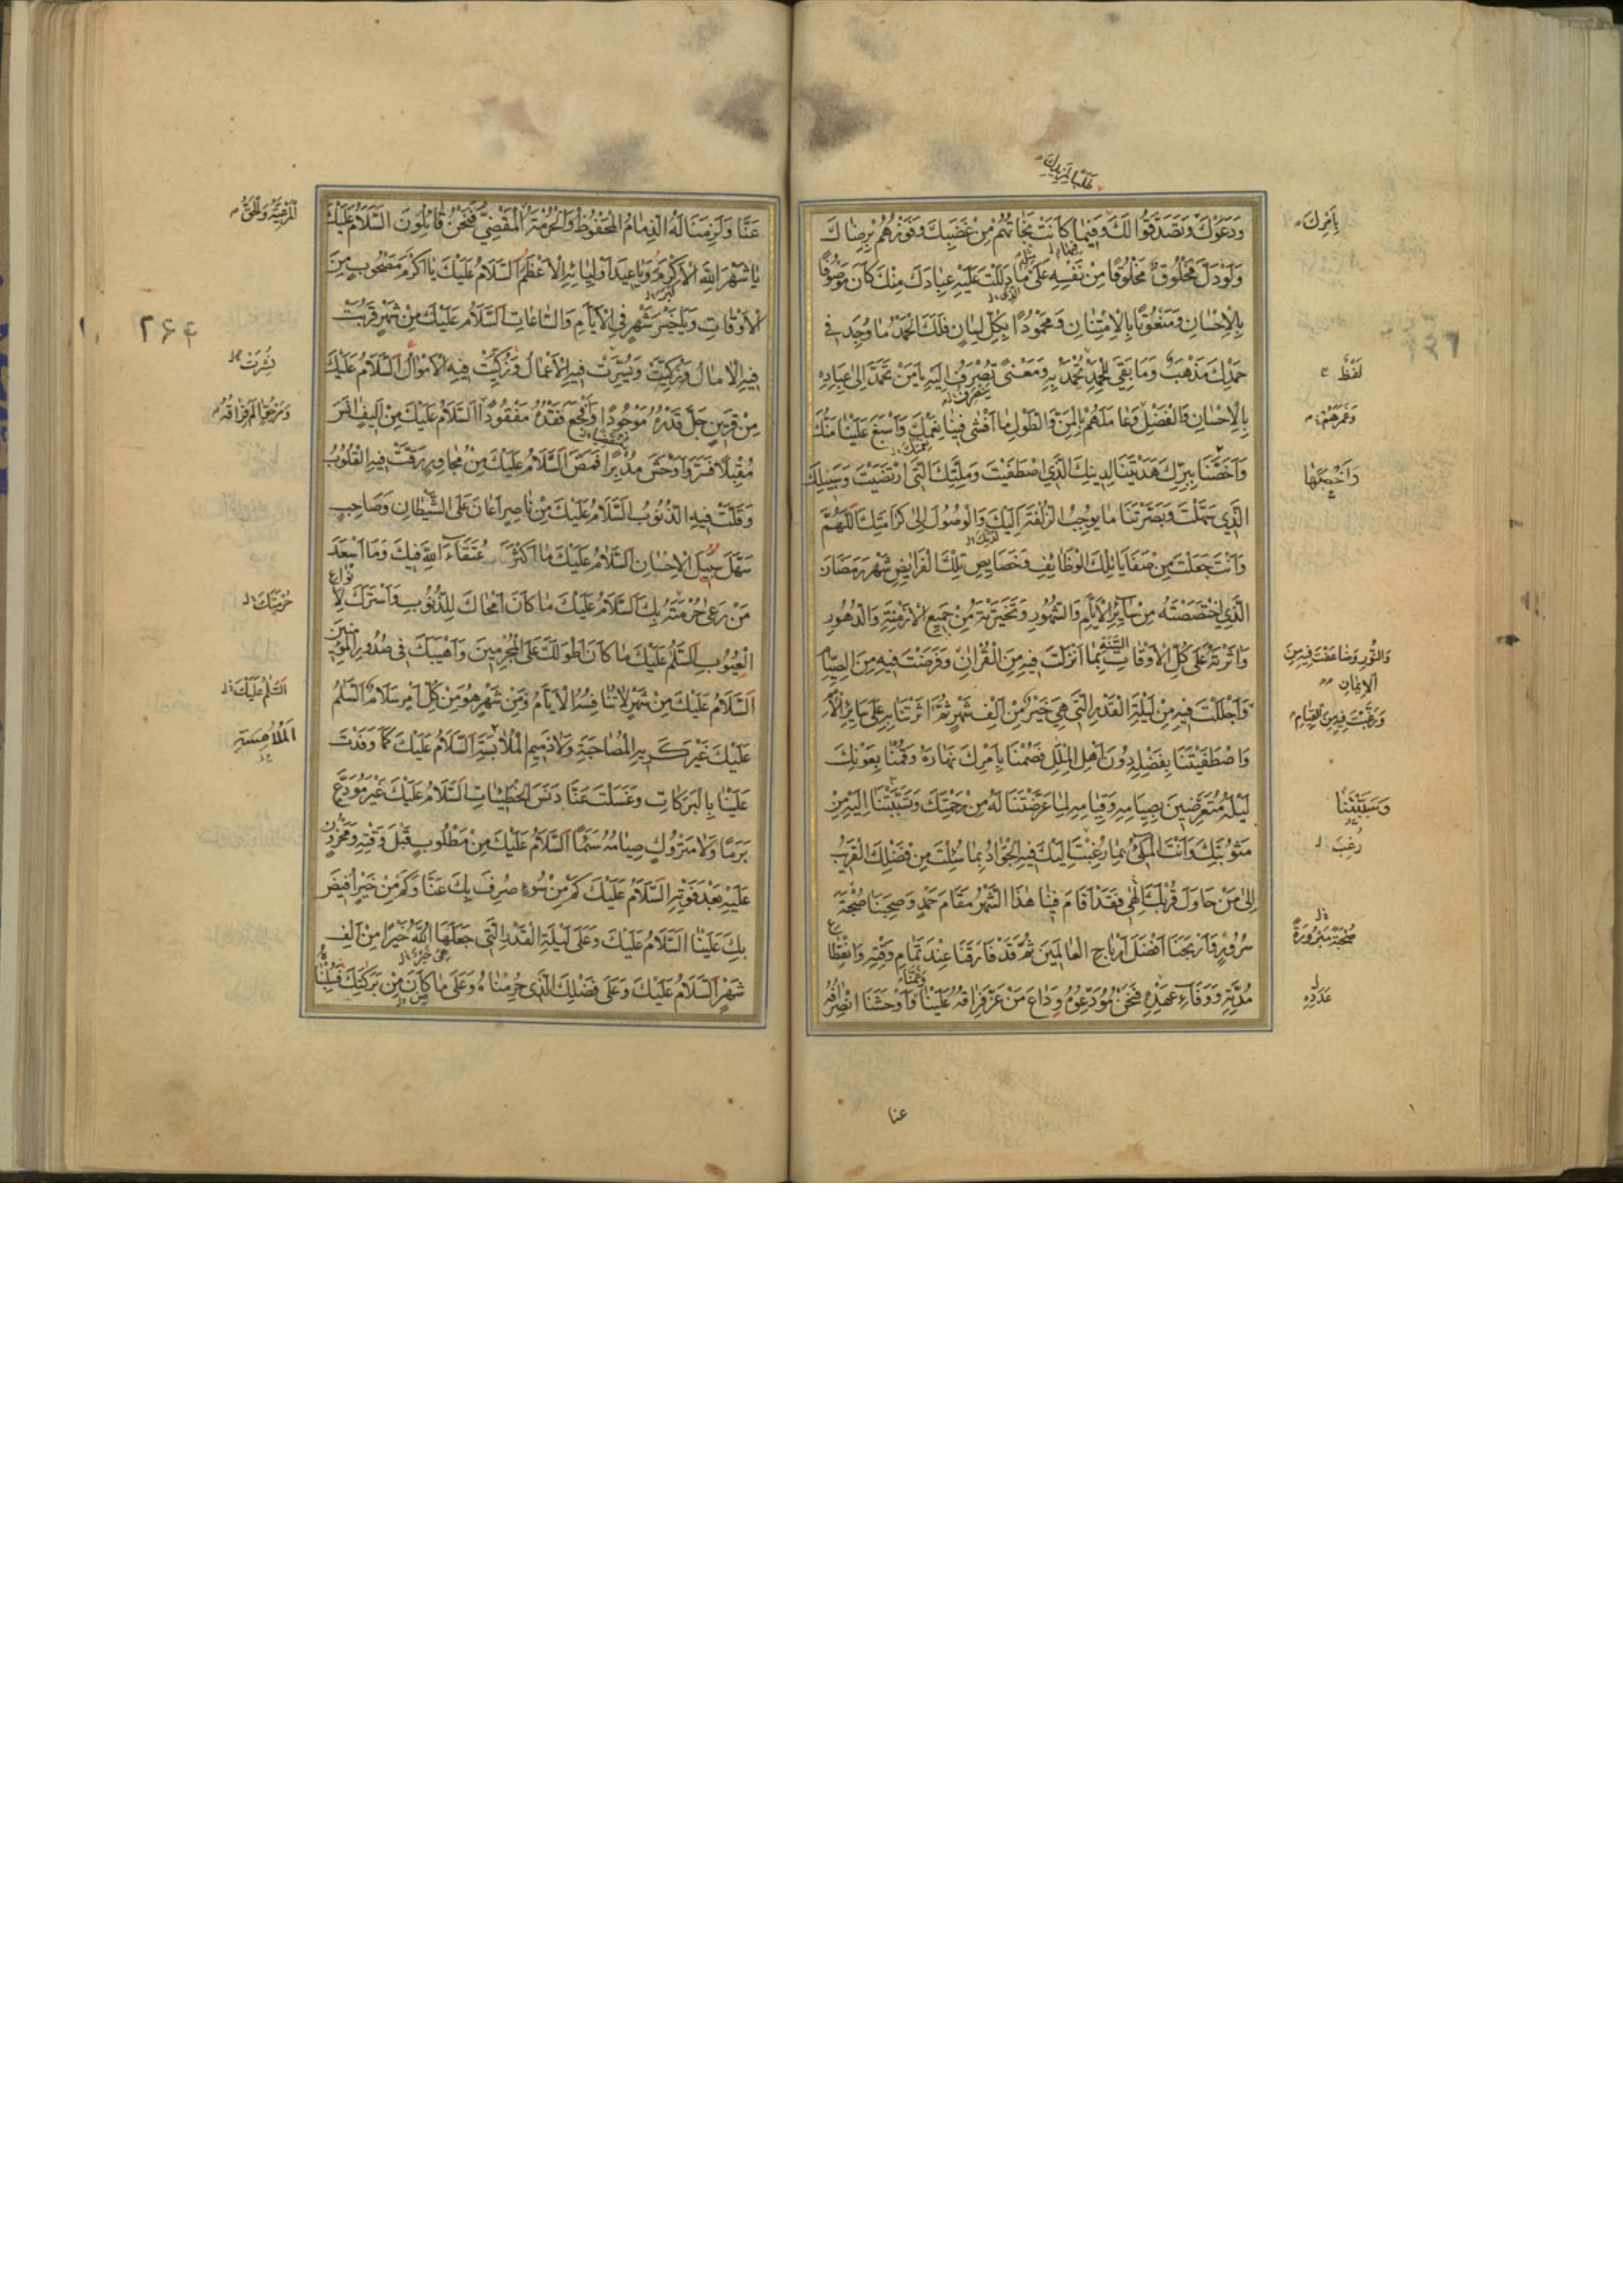 وَدَعَوْكَ وَتَصَدَّقُوا لَكَ وَفِيمَا كَانَتْ نَجَاتُهُمْ مِنْ غَضَبِكَ وَفَوْزُهُمْ بِرِضَاكَ
وَلَوْ دَلَّ مَخْلُوقٌ مَخْلُوقًا مِنْ نَفْسِهِ عَلَى مَا دَلَلْتَ عَلَيْهِ عِبَادَكَ مِنْكَ كَانَ مَوْصُوفًا
بِالْاِحْسَانِ وَمَنْعُوتًا بِالْاِمْتِنَانِ وَمَحْمُودًا بِكُلِّ لِسَانٍ فَلَكَ الْحَمْدُ مَا وُجِدَ فِي
حَمْدِكَ مَذْهَبٌ وَمَا بَقِيَ لِلْحَمْدِ تُحْمَدُ بِهِ وَمَعْنًى تُصْرَفُ اِلَيْهِ يَا مَنْ تَحَمَّدَ اِلَى عِبَادِهِ
بِالْاِحْسَانِ وَالْفَضْلِ وَعَامَلَهُمْ بِالْمَنِّ وَالطَّوْلِ مَا اَفْشَى فِينَا نِعْمَتَكَ وَاَسْبَغَ عَلَيْنَا مِنَّتَكَ
وَاَخَصَّنَا بِبِرِّكَ هَدَيْتَنَا لِدِينِكَ الَّذِي اصْطَفَيْتَ وَمِلَّتِكَ الَّتِي ارْتَضَيْتَ وَسَبِيلِكَ
الَّذِي سَهَّلْتَ وَبَصَّرْتَنَا مَا يُوجِبُ الزُّلْفَةَ اِلَيْكَ وَالْوُصُولَ اِلَى كَرَامَتِكَ اَللّٰهُمَّ
وَاَنْتَ جَعَلْتَ مِنْ صَفَايَا تِلْكَ الْوَظَائِفِ وَخَصَايِصِ تِلْكَ الْفَرَايِضِ شَهْرَ رَمَضَانَ
الَّذِي اخْتَصَصْتَهُ مِنْ سَائِرِ الْاَيَّامِ وَالشُّهُورِ وَتَخَيَّرْتَهُ مِنْ جَمِيعِ الْاَزْمِنَةِ وَالدُّهُورِ
وَاٰثَرْتَهُ عَلَى كُلِّ الْاَوْقَاتِ بِمَا اَنْزَلْتَ فِيهِ مِنَ الْقُرْاٰنِ وَفَرَضْتَ فِيهِ مِنَ الصِّيَامِ
وَاَجْلَلْتَ فِيهِ مِنْ لَيْلَةِ الْقَدْرِ الَّتِي هِيَ خَيْرٌ مِنْ اَلْفِ شَهْرٍ ثُمَّ اٰثَرْتَنَا بِهِ عَلَى سَائِرِ الْاُمَمِ
وَاصْطَفَيْتَنَا بِفَضْلِهِ دُونَ اَهْلِ الْمِلَلِ فَصُمْنَا بِاَمْرِكَ نَهَارَهُ وَقُمْنَا بِعَوْنِكَ
لَيْلَهُ مُتَعَرِّضِينَ بِصِيَامِهِ وَقِيَامِهِ لِمَا عَرَّضْتَنَا لَهُ مِنْ رَحْمَتِكَ وَتَسَبَّبْنَا اِلَيْهِ مِنْ
مَثُوبَتِكَ وَاَنْتَ الْمَلِيُّ بِمَا رُغِبَ اِلَيْكَ فِيهِ الْجَوَادُ بِمَا سُئِلْتَ مِنْ فَضْلِكَ الْقَرِيبُ
اِلَى مَنْ حَاوَلَ قُرْبَكَ اِلٰهِي فَقَدْ اَقَامَ فِينَا هٰذَا الشَّهْرُ مَقَامَ حَمْدٍ وَصَحِبَنَا صُحْبَةَ
سُرُورٍ وَاَرْبَحَنَا اَفْضَلَ اَرْبَاحِ الْعَالَمِينَ ثُمَّ قَدْ فَارَقَنَا عِنْدَ تَمَامِ وَقْتِهِ وَانْقِطَاعِ
مُدَّتِهِ وَوَفَاءِ عَهْدِهِ فَنَحْنُ مُوَدِّعُوهُ وِدَاعَ مَنْ عَزَّ فِرَاقُهُ عَلَيْنَا وَاَوْحَشَنَا انْصِرَافُهُ
بِاَمْرِكَ
لَفْظٌ
وَغَمَرَهُمْ
وَاَخَصَّنَا بِهَا
وَالنُّورِ وَضَاعَفْتَ فِيهِ مِنَ
الْاِيمَانِ
وَرَغَّبْتَ فِيهِ مِنَ الْقِيَامِ
وَسَبَّبْتَنَا
رُغِبَ
صُحْبَةً مَبْرُورَةً
عَدَدِهِ
عنا
عَنَّا وَلَزِمَنَا لَهُ الذِّمَامُ الْمَحْفُوظُ وَالْحُرْمَةُ الْمَقْضِيُّ فَنَحْنُ قَائِلُونَ السَّلَامُ عَلَيْكَ
يَا شَهْرَ اللهِ الْاَكْرَمَ وَيَا عِيدَ اَوْلِيَائِهِ الْاَعْظَمَ السَّلَامُ عَلَيْكَ يَا اَكْرَمَ مَصْحُوبٍ مِنَ
الْاَوْقَاتِ وَيَا خَيْرَ شَهْرٍ فِي الْاَيَّامِ وَالسَّاعَاتِ السَّلَامُ عَلَيْكَ مِنْ شَهْرٍ قَرُبَتْ
فِيهِ الْاٰمَالُ وَزُكِّيَتْ وَيُسِّرَتْ فِيهِ الْاَعْمَالُ وَزُكِّيَتْ فِيهِ الْاَمْوَالُ السَّلَامُ عَلَيْكَ
مِنْ قَرِينٍ جَلَّ قَدْرُهُ مَوْجُودًا وَاَفْجَعَ فَقْدُهُ مَفْقُودًا السَّلَامُ عَلَيْكَ مِنْ اَلِيفٍ اٰنَسَ
مُقْبِلًا فَسَرَّ وَاَوْحَشَ مُدْبِرًا فَمَضَّ السَّلَامُ عَلَيْكَ مِنْ مُجَاوِرٍ رَقَّتْ فِيهِ الْقُلُوبُ
وَقَلَّتْ فِيهِ الذُّنُوبُ السَّلَامُ عَلَيْكَ مِنْ نَاصِرٍ اَعَانَ عَلَى الشَّيْطَانِ وَصَاحِبٍ
سَهَّلَ سَبِيلَ الْاِحْسَانِ السَّلَامُ عَلَيْكَ مَا اَكْثَرَ عُتَقَاءَ اللهِ فِيكَ وَمَا اَسْعَدَ
مَنْ رَعَى حُرْمَتَهُ بِكَ السَّلَامُ عَلَيْكَ مَا كَانَ اَمْحَاكَ لِلذُّنُوبِ وَاَسْتَرَكَ لِاَنْوَاعِ
الْعُيُوبِ السَّلَمُ عَلَيْكَ مَا كَانَ اَطْوَلَكَ عَلَى الْمُجْرِمِينَ وَاَهْيَبَكَ فِي صُدُورِ الْمُؤْمِنِينَ
السَّلَامُ عَلَيْكَ مِنْ شَهْرٍ لَا تُنَافِسُهُ الْاَيَّامُ وَمِنْ شَهْرٍ هُوَ مِنْ كُلِّ اَمْرٍ سَلَامٌ السَّلَمُ
عَلَيْكَ غَيْرَ كَرِيهِ الْمُصَاحَبَةِ وَلَا ذَمِيمِ الْمُلَابَسَةِ السَّلَامُ عَلَيْكَ كَمَا وَفَدْتَ
عَلَيْنَا بِالْبَرَكَاتِ وَغَسَلْتَ عَنَّا دَنَسَ الْخَطِيئَاتِ السَّلَامُ عَلَيْكَ غَيْرَ مُوَدَّعٍ
بَرَمًا وَلَا مَتْرُوكٍ صِيَامُهُ سَئَمًا السَّلَامُ عَلَيْكَ مِنْ مَطْلُوبٍ قَبْلَ وَقْتِهِ وَمَحْزُونٍ
عَلَيْهِ بَعْدَ فَوْتِهِ السَّلَامُ عَلَيْكَ كَمْ مِنْ سُوءٍ صُرِفَ بِكَ عَنَّا وَكَمْ مِنْ خَيْرٍ اُفِيضَ
بِكَ عَلَيْنَا السَّلَامُ عَلَيْكَ وَعَلَى لَيْلَةِ الْقَدْرِ الَّتِي جَعَلَهَا اللهُ خَيْرًا مِنْ اَلْفِ
شَهْرٍ السَّلَامُ عَلَيْكَ وَعَلَى فَضْلِكَ الَّذِي حُرِمْنَاهُ وَعَلَى مَا كَانَ مِنْ بَرَكَتِكَ
الْمَرْعِيَّةُ وَالْحَقُّ
نُشِرَتْ
حُرْمَتَكَ
السَّلَمُ عَلَيْكَ
الْمُلَامَسَةِ
۲۶۴